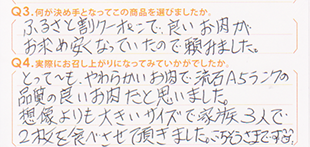 Q3.何が決め手となってこの商品を選びましたか。
ふるさと割クーポンで、良いお肉が
お求め安くなっていたので頼みました。
Q4.実際にお召し上がりになってみていかがでしたか。
とってても、やわらかいお肉で、流石A5ランクの
品質の良いお肉だと思いました。
想像よりも大きいサイズで家族3人で
2枚を食べさせて頂きました。ごちそうさまです。